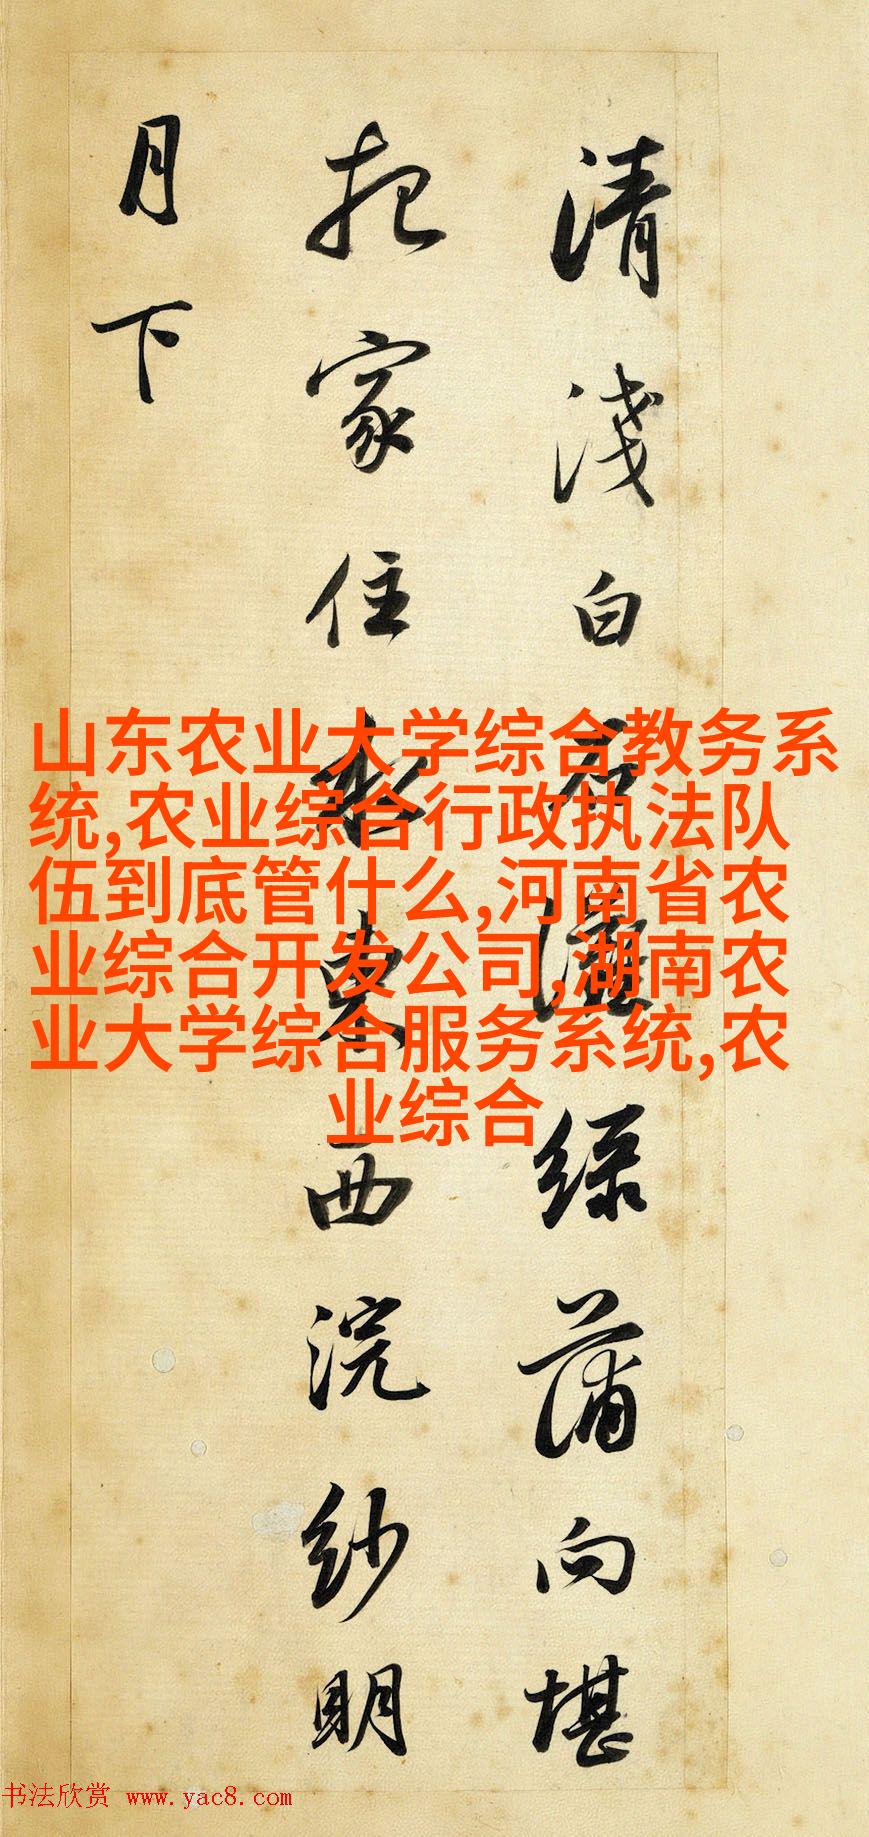 清淺白石灘綠蒲向堪
把家住水東西浣紗明
月下
山东农业大学综合教务系
统,农业综合行政执法队
伍到底管什么,河南省农
业综合开发公司,湖南农
业大学综合服务系统,农
业综合
书法欣赏 www.yac8.com